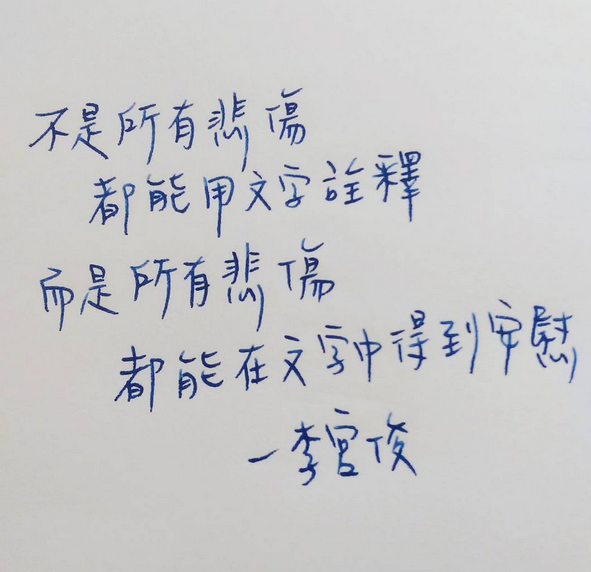 不是所有悲傷
都能用文字詮釋
而是所有悲傷
都能在文字中得到安慰
—李宮俊